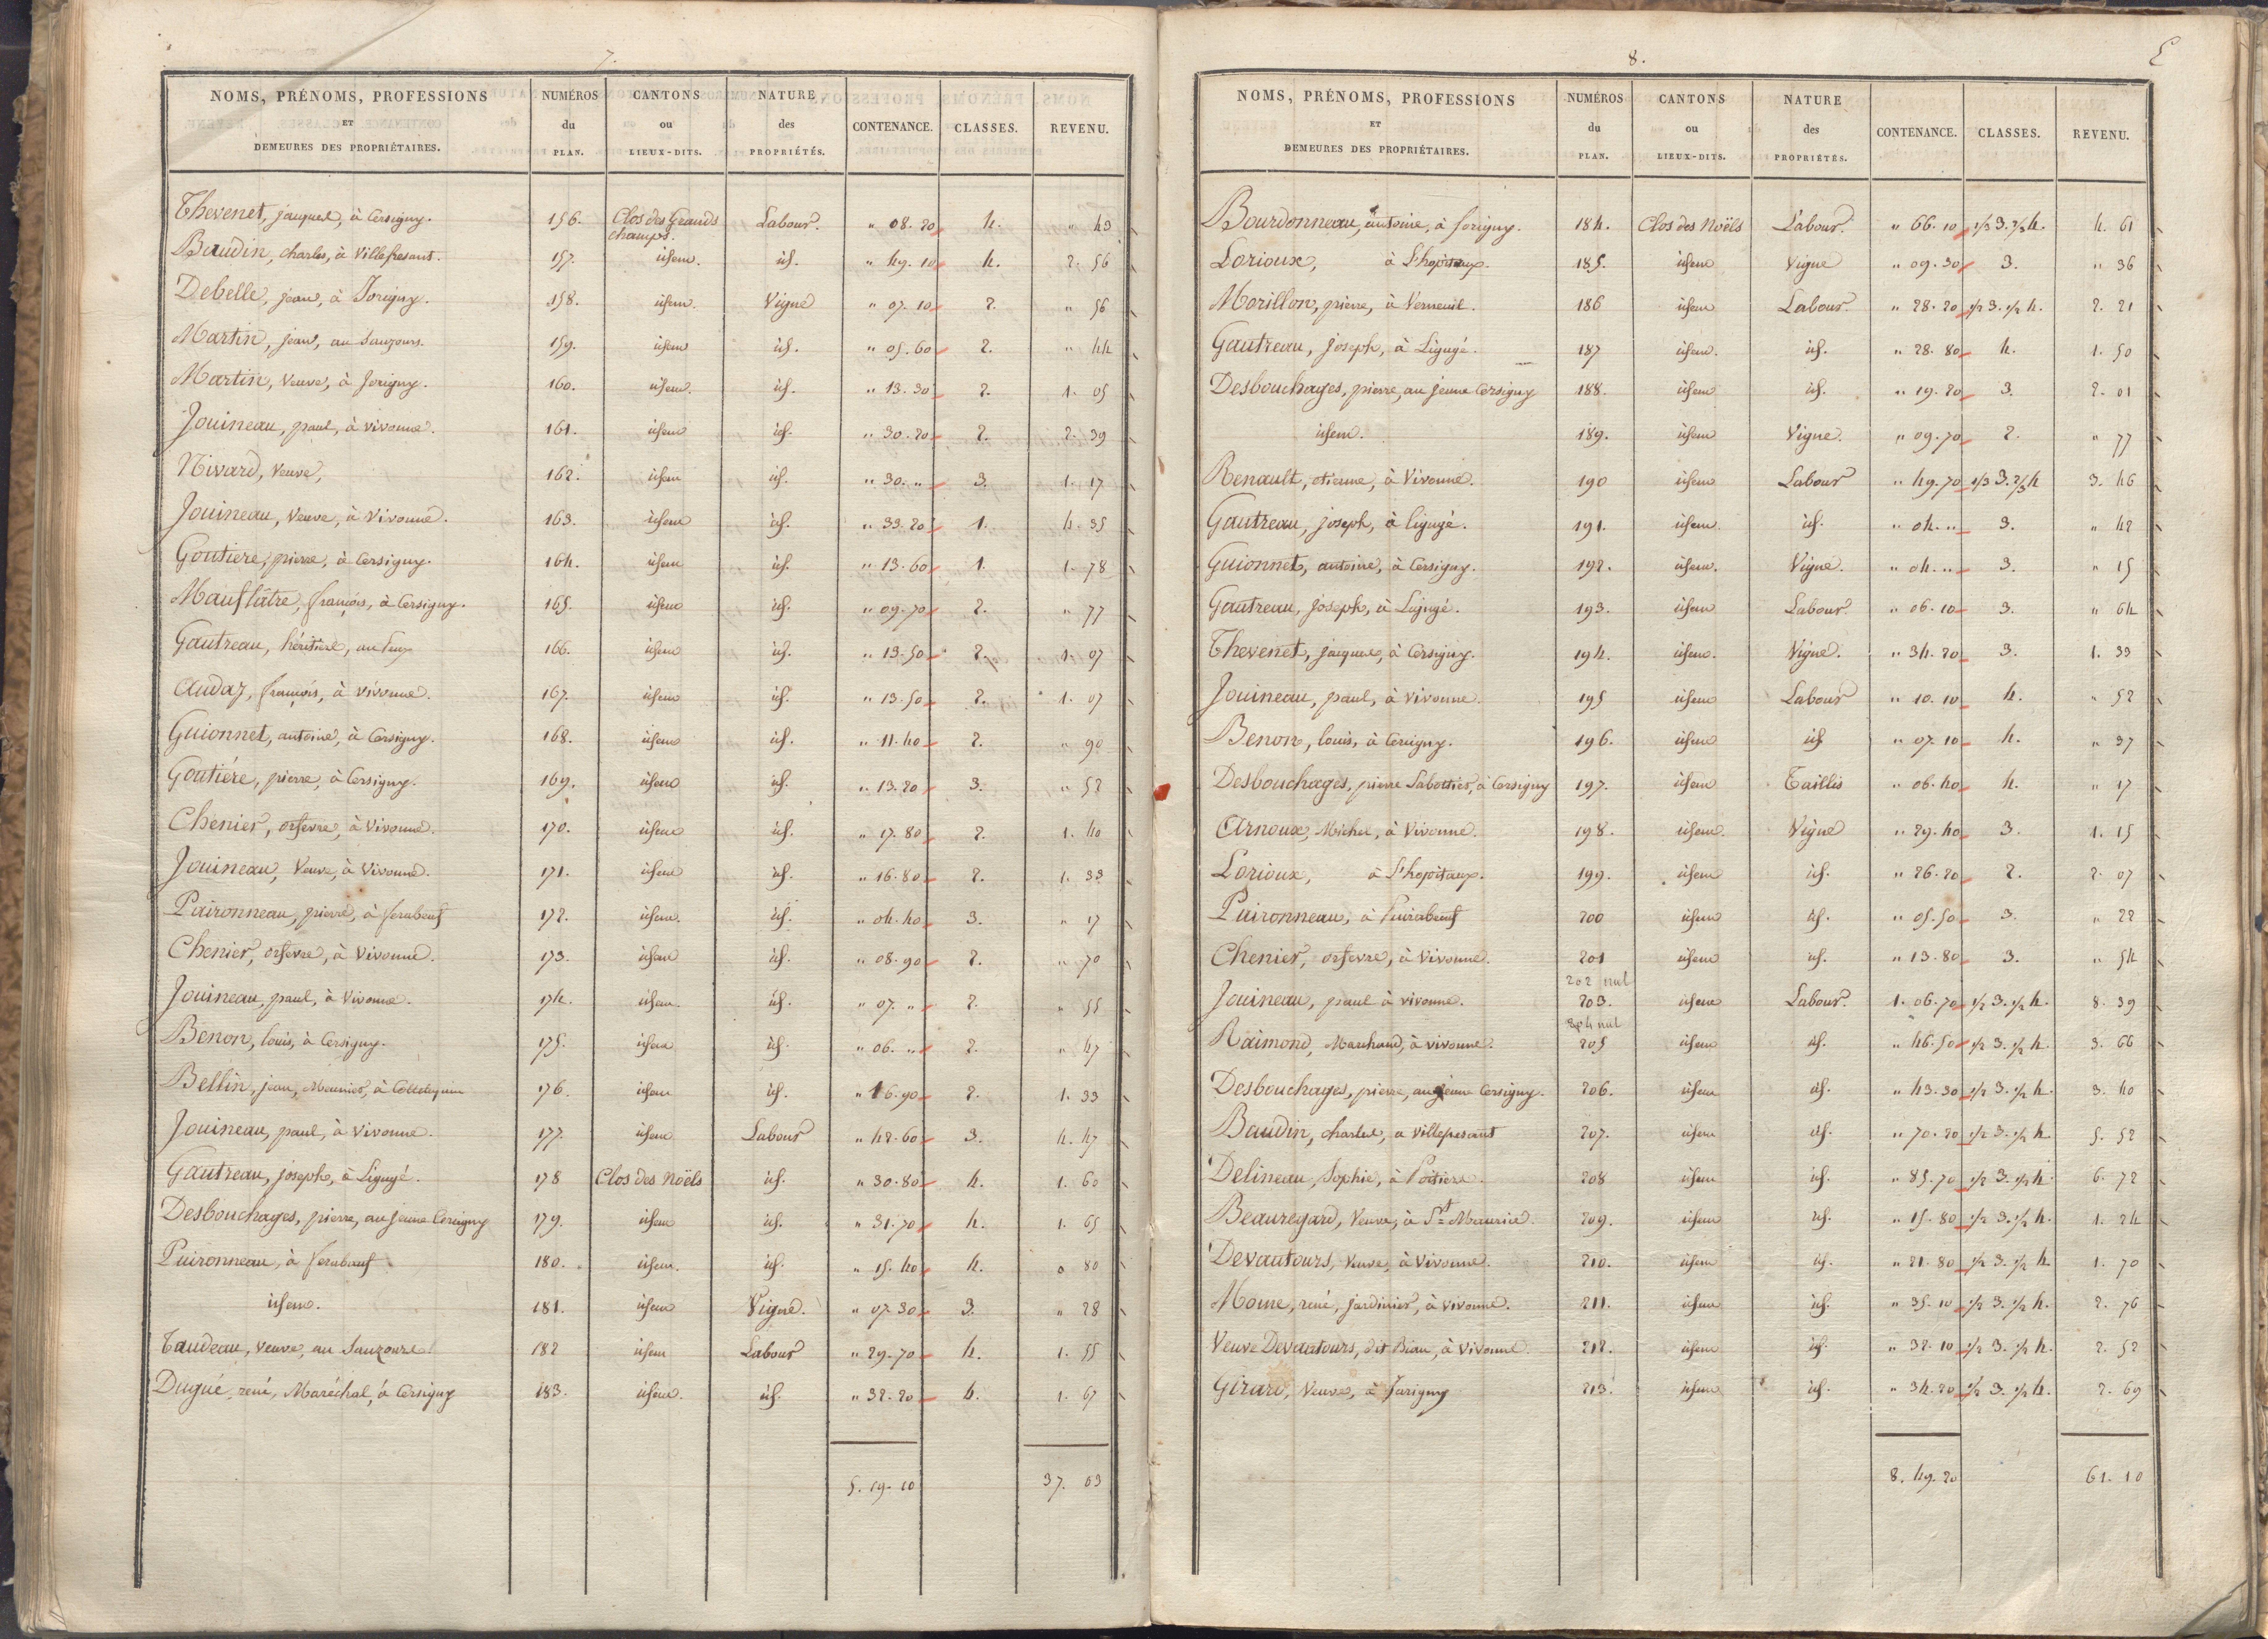 7.
NOMS, PRÉNOMS, PROFESSIONS ET DEMEURES DES PROPRIÉTAIRES. NUMÉROS du PLAN. CANTONS ou LIEUX-DITS. NATURE des PROPRIÉTÉS. CONTENANCE. CLASSES. REVENU.
Thevenet, jacques, à Cersigny. 156. Clos des Grands champs. Labour. " 08. 20 4. " 43
Baudin, charles, à Villepesant. 157. idem. id. " 49. 10 4. 2. 56
Debelle, jean, à Jorigny. 158. idem. Vigne " 07. 10 2. " 56
Martin, jean, au Sauzours. 159. idem id. " 05. 60 2. " 44
Martin, Veuve, à Jorigny. 160. idem. id. " 13. 30 2. 1. 05
Jouineau, paul, à vivonne. 161. idem id. " 30. 20 2. 2. 39
Nivard, Veuve, 162. idem id. " 30. " 3. 1. 17
Jouineau, Veuve, à Vivonne. 163. idem id. " 33. 20 1. 4. 35
Goutiere, pierre, à Cersigny. 164. idem id. " 13. 60 1. 1. 78
Mauflatre, françois, à Cersigny. 165. idem id. " 09. 70 2. " 77
Gautreau, héritiere, au 166. idem id. " 13. 50 2. 1. 07
Audaz, françois, à vivonne. 167. idem id. " 13. 50 2. 1. 07
Guionnet, antoine, à Cersigny. 168. idem id. " 11. 40 2. " 90
Goutiére, pierre, à Cersigny. 169. idem id. " 13. 20 3. " 52
Chenier, orfevre, à Vivonne. 170. idem id. " 17. 80 2. 1. 40
Jouineau, Veuve, à Vivonne. 171. idem id. " 16. 80 2. 1. 33
Puironneau, pierre, à ferabeuf 172. idem. id. " 04. 40 3. " 17
Chenier, orfevre, à Vivonne. 173. idem id. " 08. 90 2. " 70
Jouineau, paul, à Vivonne. 174. idem. id. " 07. " 2. " 55
Benon, louis, à Cersigny. 175. idem id. " 06. " 2. " 47
Bellin, jean, Meunier, à 176. idem id. " 16. 90 2. 1. 33
Jouineau, paul, à Vivonne. 177. idem Labour " 42. 60 3. 4. 47
Gautreau, joseph, à Ligugé. 178 Clos des Noëls id. " 30. 80 4. 1. 60
Desbouchages, pierre, au jeune Cersigny 179. idem id. " 31. 70 4. 1. 65
Puironneau, à ferabeuf 180. idem. id. " 15. 40 4. 0 80
idem. 181. idem Vigne. " 07. 30 3. " 28
Taudeau, veuve, au Sauzours. 182 idem Labour " 29. 70 4. 1. 55
Dugué, rené, Maréchal, à Cersigny 183. idem. id. " 32. 20 4. 1. 67
5. 19. 10 37. 03
8.
NOMS, PRÉNOMS, PROFESSIONS ET DEMEURES DES PROPRIÉTAIRES. NUMÉROS du PLAN. CANTONS ou LIEUX-DITS. NATURE des PROPRIÉTÉS. CONTENANCE. CLASSES. REVENU.
Bourdonneau, antoine, à forigny. 184. Clos des Noëls Labour. " 66. 10 1/3 3. 2/3 4. 4. 61
Lorioux, à L'hopitaux. 185. idem Vigne " 09. 30 3. " 36
Morillon, pierre, à Verneuil. 186 idem Labour. " 28. 20 1/2 3. 1/2 4. 2. 21
Gautreau, joseph, à Ligugé. 187 idem. id. " 28. 80 4. 1. 50
Desbouchages, pierre, au jeune Cersigny 188. idem id. " 19. 20 3. 2. 01
idem. 189. idem Vigne. " 09. 70 2. " 77
Renault, etienne, à Vivonne. 190 idem Labour " 49. 70 1/3 3. 2/3 4 3. 46
Gautreau, joseph, à ligugé. 191. idem. id. " 04. " 3. " 42
Guionnet, antoine, à Cersigny. 192. idem. Vigne. " 04. " 3. " 15
Gautreau, joseph, à Ligugé. 193. idem Labour. " 06. 10 3. " 64
Thevenet, jacques, à Cersigny. 194. idem. Vigne. " 34. 20 3. 1. 33
Jouineau, paul, à Vivonne. 195 idem Labour " 10. 10 4. " 52
Benon, louis, à Cersigny. 196. idem id " 07. 10 4. " 37
Desbouchages, pierre Sabottier, à Cersigny 197. idem Taillis " 06. 40 4. " 17
Arnoux, Michel, à Vivonne. 198. idem. Vigne " 29. 40 3. 1. 15
Lorioux, à L'hopitaux. 199. idem id. " 26. 20 2. 2. 07
Puironneau, à Puirabeuf 200 idem id. " 05. 50 3. " 22
Chenier, orfevre, à Vivonne. 201 idem id. " 13. 80 3. " 54
202 nul
Jouineau, paul à vivonne. 203. idem Labour. 1. 06. 70 1/2 3. 1/2 4. 8. 39
204 nul
Raimond, Marchand, à vivonne. 205 idem id. " 46. 50 1/2 3. 1/2 4. 3. 66
Desbouchages, pierre, au jeune Cersigny. 206. idem id. " 43. 30 1/2 3. 1/2 4. 3. 40
Baudin, charles, à Villepesant 207. idem id. " 70. 20 1/2 3. 1/2 4. 5. 52
Delineau, Sophie, à Poitiers. 208 idem id. " 85. 70 1/2 3. 1/2 4. 6. 72
Beauregard, Veuve, à St Maurice. 209. idem id. " 15. 80 1/2 3. 1/2 4. 1. 24
Devautours, Veuve, à Vivonne. 210. idem id. " 21. 80 1/2 3. 1/2 4. 1. 70
Moine, rené, jardinier, à vivonne. 211. idem id. " 35. 10 1/2 3. 1/2 4. 2. 76
Veuve Devautours, dit Biau, à Vivonne. 212. idem id. " 32. 10 1/2 3. 1/2 4. 2. 52
Girard, Veuve, à Jarigny 213. idem id. " 34. 20 1/2 3. 1/2 4. 2. 69
8. 49. 20 61. 10